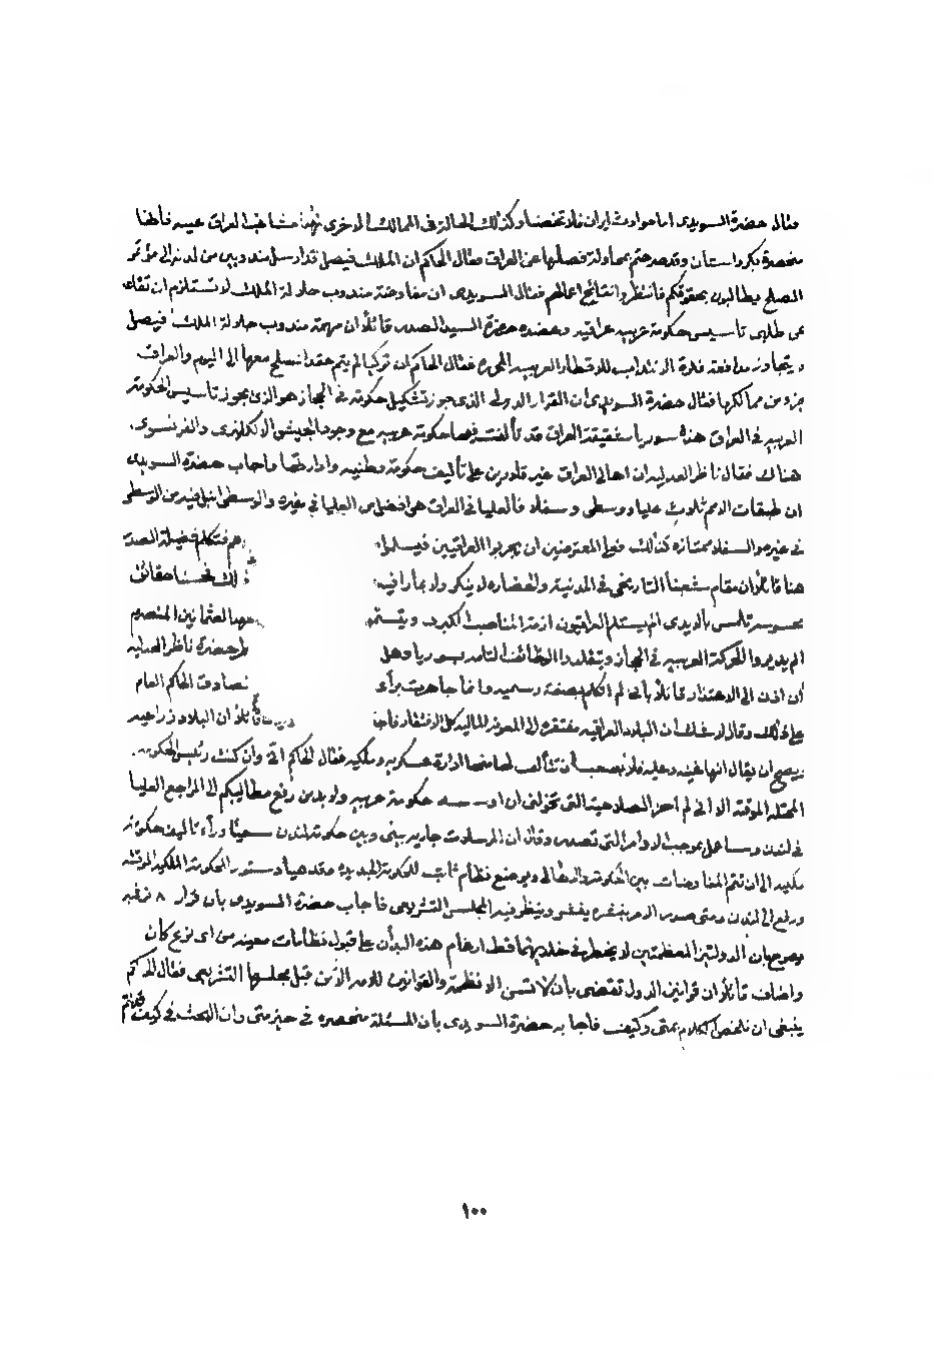 فقال حضرة السويدي اما حوادث ايران فلا تخصنا وكذلك الحالة في الممالك الاخرى مشاغب العراق عينه فأطنها
منحصرة بكردستان وقد صرحتم بمحاولة فصلها عن العراق فقال الحاكم ان الملك فيصل قد ارسل مندوبين من لدنه الى مؤتمر
الصلح يطالبون بحقوقكم فانتظروا نتائج اعمالهم فقال السويدي ان مفاوضة مندوب جلالة الملك لا تستلزم ان تقاعد
عن طلب تأسيس حكومة عربية عراقية وعضده حضرة السيد الصدر قائلاً ان مهمة مندوب جلالة الملك فيصل
لا يتجاوز مدافعة فكرة الانتداب للاقطار العربية المحررة فقال الحاكم ان تركيا لم يتم عقد الصلح معها الى اليوم والعراق
جزء من ممالكها فقال حضرة السويدي ان القرار الدولي الذي جوز تشكيل حكومة في الحجاز هو الذي يجوز تأسيس الحكومة
العربية في العراق هذه سوريا شقيقة العراق قد تألفت فيها حكومة عربية مع وجود الجيش الانكليزي والفرنسوي
هناك فقال ناظر العدلية ان اهالي العراق غير قادرين على تأليف حكومة وطنية وادارتها فاجاب حضرة السويدي
ان طبقات الامم ثلاث عليا ووسطى وسفلى فالعليا في العراق هي افضل من العليا في غيره والوسطى انبل فيه من الوسطى
في غيره والسفلى ممتازة كذلك فعلى المعترضين ان يجربوا العراقيين هم فتكلم فضيلة الصدر
هنا قائلاً ان مقام شعبنا التاريخي في المدنية والحضارة لا ينكر لك فحسنا حقائق
تلمس بالايدي الم يستلم العراقيون ازمة المناصب الكبرى عهد العثمانيين المنصرم
الم يديروا الحركة العربية في الحجاز ويتقلدوا الوظائف التامة بسوريا وهل حضرة ناظر العدلية
ان اذن الى الاعتذار قائلاً بأنه لم اتكلم بصفة رسمية وانما جاهرت برأي تصادق الحاكم العام
على ذلك وقال لا شك ان البلاد العراقية مفتقرة الى المعونة المالية كل الافتقار فأجا قائلاً ان البلاد زراعية
يصح ان يقال انها غنية وعليه فلا يصعب ان تتألف لها ادارة عسكرية وملكية فقال الحاكم اني وان كنت رئيس الحكومة
المحتلة الموقتة الا اني لم احز الصلاحية التي تخولني ان اؤسس حكومة عربية ولا بد من رفع مطاليبكم الى المراجع العليا
في لندن وساعمل بموجب الاوامر التي تصدر وقال ان المراسلات جارية بيني وبين حكومة لندن سعياً وراء تأليف حكومة
ملكية الى ان تتم المفاوضات بين الحكومة والاهالي ويوضع نظام ثابت للحكومة الجديدة وقد هيأ دستور الحكومة الملكية الموقتة
ورفع الى لندن ومتى صدر الامر بنشره ينشر وينظر فيه المجلس التشريعي فاجاب حضرة السويدي بان قرار ٨ نوفمبر
يصرح بان الدولتين المعظمتين لا يخطر في خلديهما قط ارغام هذه البلدان على قبول نظامات معينة من اي نوع كان
واضاف قائلاً ان قوانين الدول تقتضي بأن لا تسن الانظمة والقوانين للامر الا من قبل مجلسها التشريعي فقال الحاكم
ينبغي ان نلخص الكلام بمتى وكيف فأجابه حضرة السويدي بأن المسئلة منحصرة في حيز متى وان البحث في كيف
١٠٠